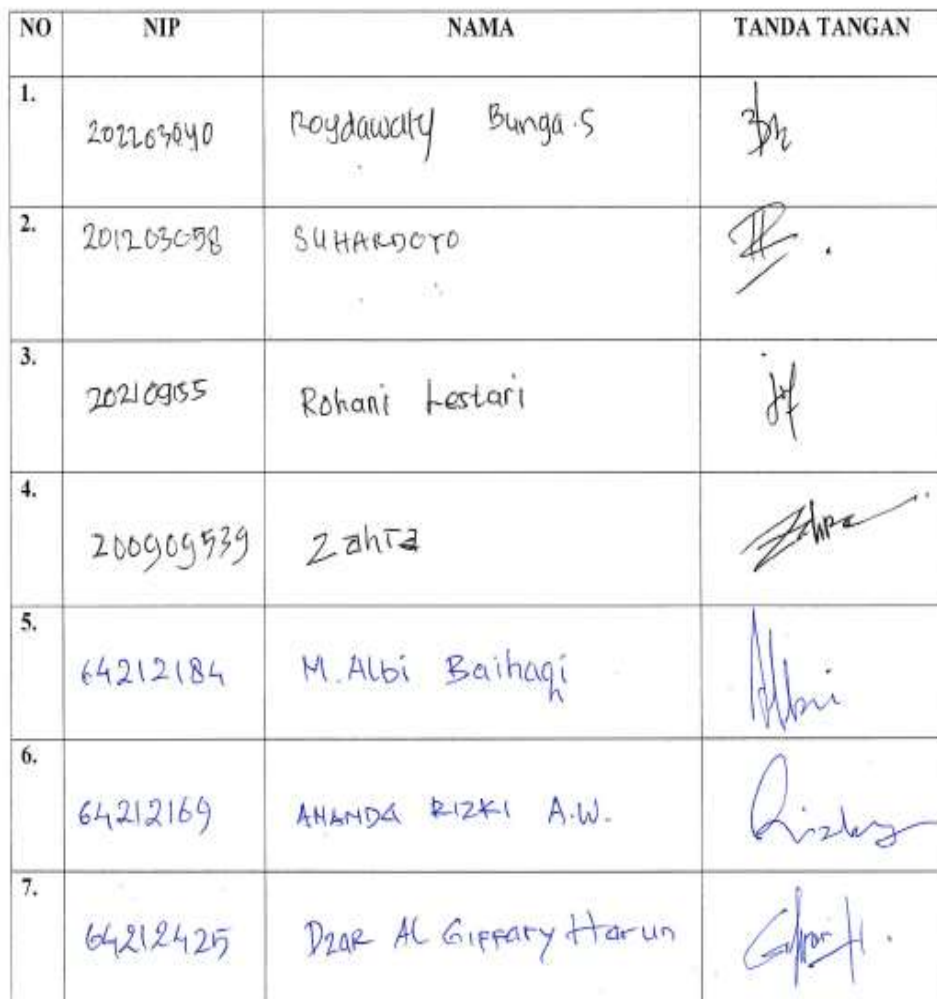 NO NIP NAMA TANDA TANGAN
1. 202203040 Roydawaty Bunga.S
2. 201203058 SUHARDOYO
3. Rohani Lestari
4. 200909539 Zahra Zahra
5. 64212184 M. Albi Baihaqi Albi
6. 64212169 AMANDA RIZKI A.W. Rizky
7. 64212425 DzaR AL GiffaRy Harun